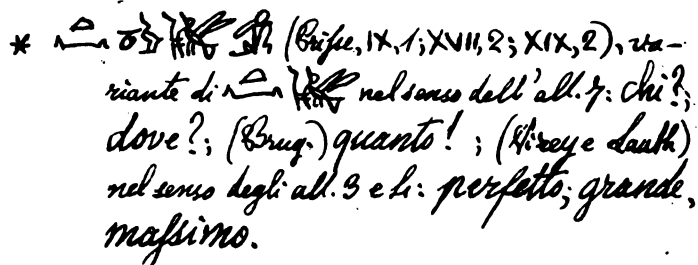 * (Prisse, IX, 1; XVII, 2; XIX, 2), va-
riante di nel senso dell'all. 7: chi?;
dove?; (Brug.) quanto!; (Virey e Lauth)
nel senso degli all. 3 e 4: perfetto; grande,
massimo.